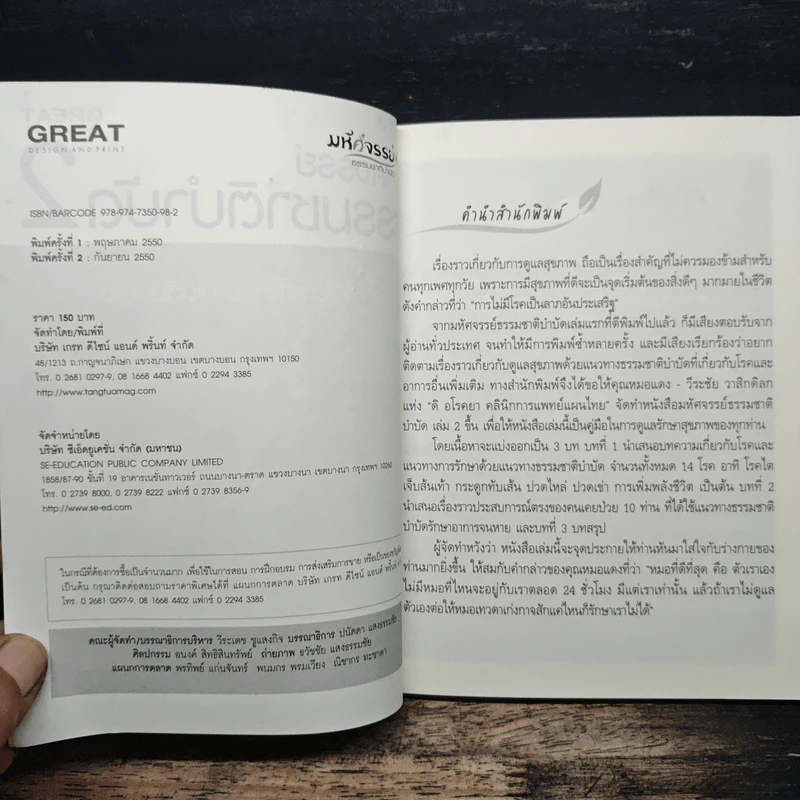 GREAT
DESIGN AND PRINT
มหัศจรรย์
ธรรมชาติบำบัด
ISBN/BARCODE 978-974-7350-98-2
พิมพ์ครั้งที่ 1 : พฤษภาคม 2550
พิมพ์ครั้งที่ 2 : กันยายน 2550
ราคา 150 บาท
จัดทำโดย/พิมพ์ที่
บริษัท เกรท ดีไซน์ แอนด์ พริ้นท์ จำกัด
48/1213 ถ.กาญจนาภิเษก แขวงบางบอน เขตบางบอน กรุงเทพฯ 10150
โทร. 0 2681 0297-9, 08 1668 4402 แฟกซ์ 0 2294 3385
http://www.tangtuamag.com
จัดจำหน่ายโดย
บริษัท ซีเอ็ดยูเคชั่น จำกัด (มหาชน)
SE-EDUCATION PUBLIC COMPANY LIMITED
1858/87-90 ชั้นที่ 19 อาคารเนชั่นทาวเวอร์ ถนนบางนา-ตราด แขวงบางนา เขตบางนา กรุงเทพฯ 10260
โทร. 0 2739 8000, 0 2739 8222 แฟกซ์ 0 2739 8356-9
http://www.se-ed.com
ในกรณีที่ต้องการซื้อเป็นจำนวนมาก เพื่อใช้ในการสอน การฝึกอบรม การส่งเสริมการขาย หรือเป็นของขวัญ
เป็นต้น กรุณาติดต่อสอบถามราคาพิเศษได้ที่ แผนกการตลาด บริษัท เกรท ดีไซน์ แอนด์ พริ้นท์
โทร. 0 2681 0297-9, 08 1668 4402 แฟกซ์ 0 2294 3385
คณะผู้จัดทำ/บรรณาธิการบริหาร วีระเดช ชูแสงกิจ บรรณาธิการ ปนัดดา แสงธรรมชัย
ศิลปกรรม อนงค์ สิทธิสินทรัพย์ ถ่ายภาพ ธวัชชัย แสงธรรมชัย
แผนกการตลาด พรทิพย์ แก่นจันทร์ พนมกร พรมเวียง ณิชากร ทะชาดา
คำนำสำนักพิมพ์
เรื่องราวเกี่ยวกับการดูแลสุขภาพ ถือเป็นเรื่องสำคัญที่ไม่ควรมองข้ามสำหรับ
คนทุกเพศทุกวัย เพราะการมีสุขภาพที่ดีจะเป็นจุดเริ่มต้นของสิ่งดีๆ มากมายในชีวิต
ดังคำกล่าวที่ว่า "การไม่มีโรคเป็นลาภอันประเสริฐ"
จากมหัศจรรย์ธรรมชาติบำบัดเล่มแรกที่ตีพิมพ์ไปแล้ว ก็มีเสียงตอบรับจาก
ผู้อ่านทั่วประเทศ จนทำให้มีการพิมพ์ซ้ำหลายครั้ง และมีเสียงเรียกร้องว่าอยาก
ติดตามเรื่องราวเกี่ยวกับดูแลสุขภาพด้วยแนวทางธรรมชาติบำบัดที่เกี่ยวกับโรคและ
อาการอื่นเพิ่มเติม ทางสำนักพิมพ์จึงได้ขอให้คุณหมอแดง - วีระชัย วาสิกดิลก
แห่ง "ดิ อโรคยา คลินิกการแพทย์แผนไทย" จัดทำหนังสือมหัศจรรย์ธรรมชาติ
บำบัด เล่ม 2 ขึ้น เพื่อให้หนังสือเล่มนี้เป็นคู่มือในการดูแลรักษาสุขภาพของทุกท่าน
โดยเนื้อหาจะแบ่งออกเป็น 3 บท บทที่ 1 นำเสนอบทความเกี่ยวกับโรคและ
แนวทางการรักษาด้วยแนวทางธรรมชาติบำบัด จำนวนทั้งหมด 14 โรค อาทิ โรคไต
เจ็บส้นเท้า กระดูกทับเส้น ปวดไหล่ ปวดเข่า การเพิ่มพลังชีวิต เป็นต้น บทที่ 2
นำเสนอเรื่องราวประสบการณ์ตรงของคนเคยป่วย 10 ท่าน ที่ได้ใช้แนวทางธรรมชาติ
บำบัดรักษาอาการจนหาย และบทที่ 3 บทสรุป
ผู้จัดทำหวังว่า หนังสือเล่มนี้จะจุดประกายให้ท่านหันมาใส่ใจกับร่างกายของ
ท่านมากยิ่งขึ้น ให้สมกับคำกล่าวของคุณหมอแดงที่ว่า "หมอที่ดีที่สุด คือ ตัวเราเอง
ไม่มีหมอที่ไหนจะอยู่กับเราตลอด 24 ชั่วโมง มีแต่เราเท่านั้น แล้วถ้าเราไม่ดูแล
ตัวเองต่อให้หมอเทวดาเก่งกาจสักแค่ไหนก็รักษาเราไม่ได้"